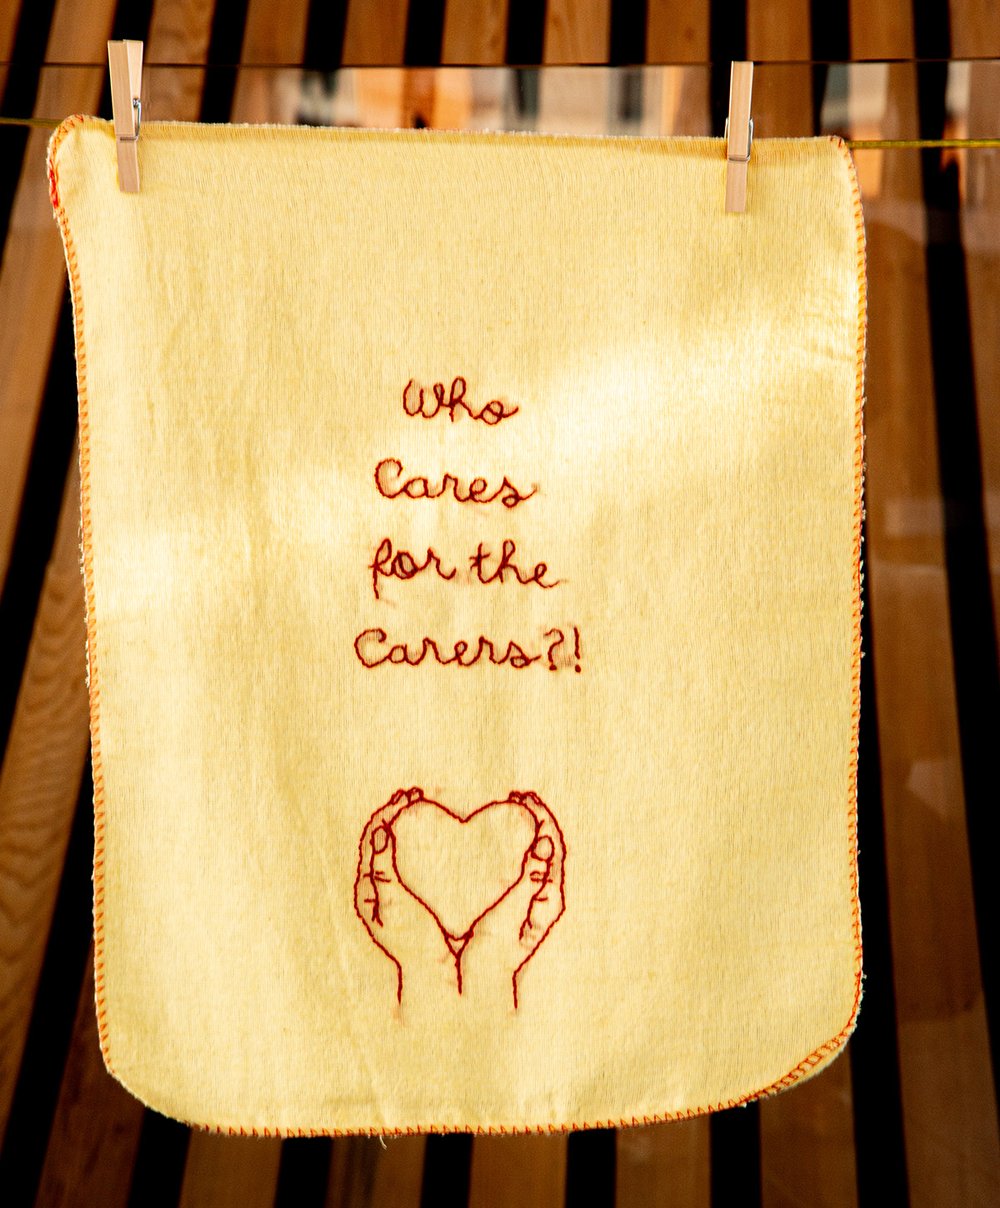 Who
Cares
for the
Carers?!